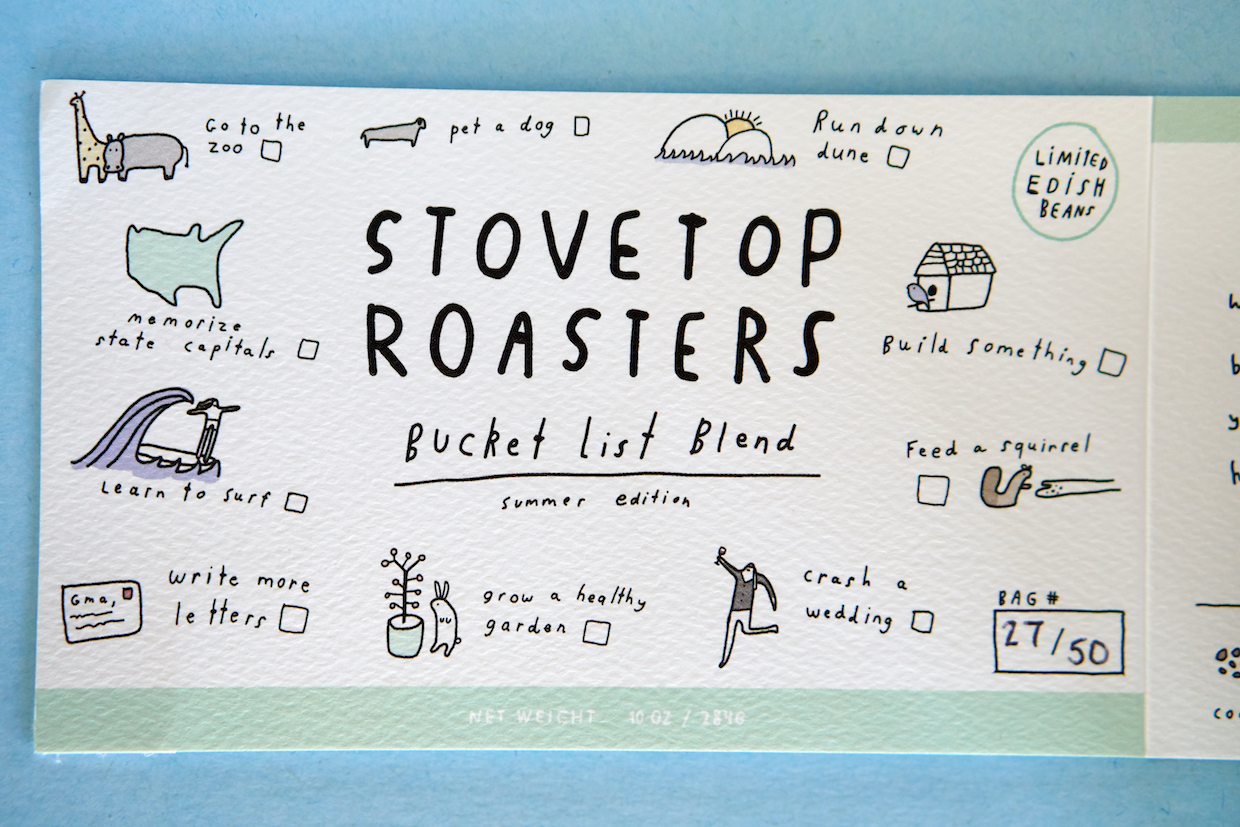 Go to the
zoo
pet a dog
Run down
dune
LIMITED
EDISH
BEANS
STOVETOP
ROASTERS
memorize
state capitals
Build something
Bucket list Blend
summer edition
Learn to surf
Feed a squirrel
Gma,
write more
letters
grow a healthy
garden
crash a
wedding
BAG #
27/50
NET WEIGHT 10 OZ / 284G